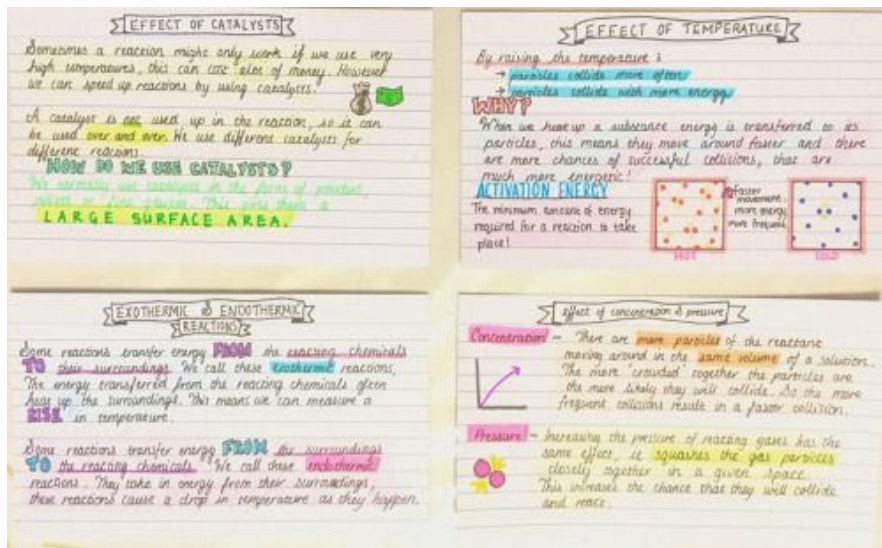 EFFECT OF CATALYSTS
Sometimes a reaction might only work if we use very
high temperatures, this can cost alot of money. However
we can speed up reactions by using catalysts.
A catalyst is not used up in the reaction, so it can
be used over and over. We use different catalysts for
different reactions.
HOW DO WE USE CATALYSTS?
We normally use catalysts in the form of
This gives them a
LARGE SURFACE AREA.
EFFECT OF TEMPERATURE
By raising the temperature:
→ particles collide more often
→ particles collide with more energy
WHY?
When we heat up a substance energy is transferred to its
particles, this means they move around faster and there
are more chances of successful collisions, that are
much more energetic!
ACTIVATION ENERGY
The minimum amount of energy
required for a reaction to take
place!
Faster
movement
more energy
more frequent
HOT
COLD
EXOTHERMIC & ENDOTHERMIC
REACTIONS
Some reactions transfer energy FROM the reacting chemicals
TO their surroundings. We call these exothermic reactions,
The energy transferred from the reacting chemicals often
heat up the surroundings. This means we can measure a
RISE in temperature.
Some reactions transfer energy FROM the surroundings
TO the reacting chemicals. We call these endothermic
reactions. They take in energy from their surroundings,
these reactions cause a drop in temperature as they happen.
Effect of concentration & pressure
Concentration – There are more particles of the reactant
moving around in the same volume of a solution.
The more 'crowded' together the particles are
the more likely they will collide. So the more
frequent collisions result in a faster collision.
Pressure – Increasing the pressure of reacting gases has the
same effect, it squashes the gas particles
closely together in a given space.
This increases the chance that they will collide
and react.